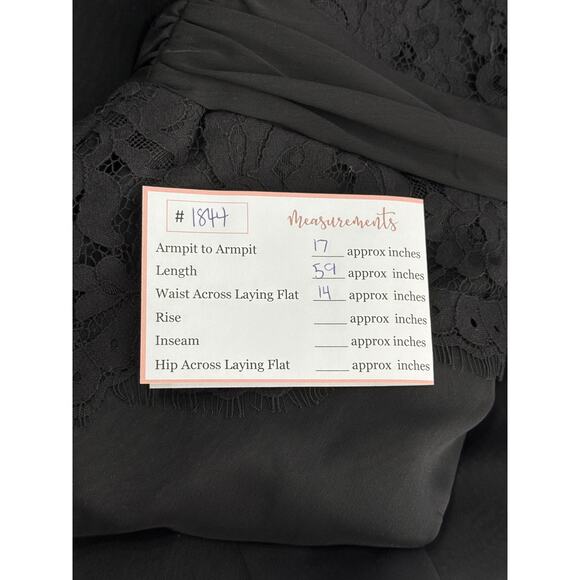 # 1844 Measurements
Armpit to Armpit 17 approx inches
Length 59 approx inches
Waist Across Laying Flat 14 approx inches
Rise ____ approx inches
Inseam ____ approx inches
Hip Across Laying Flat ____ approx inches